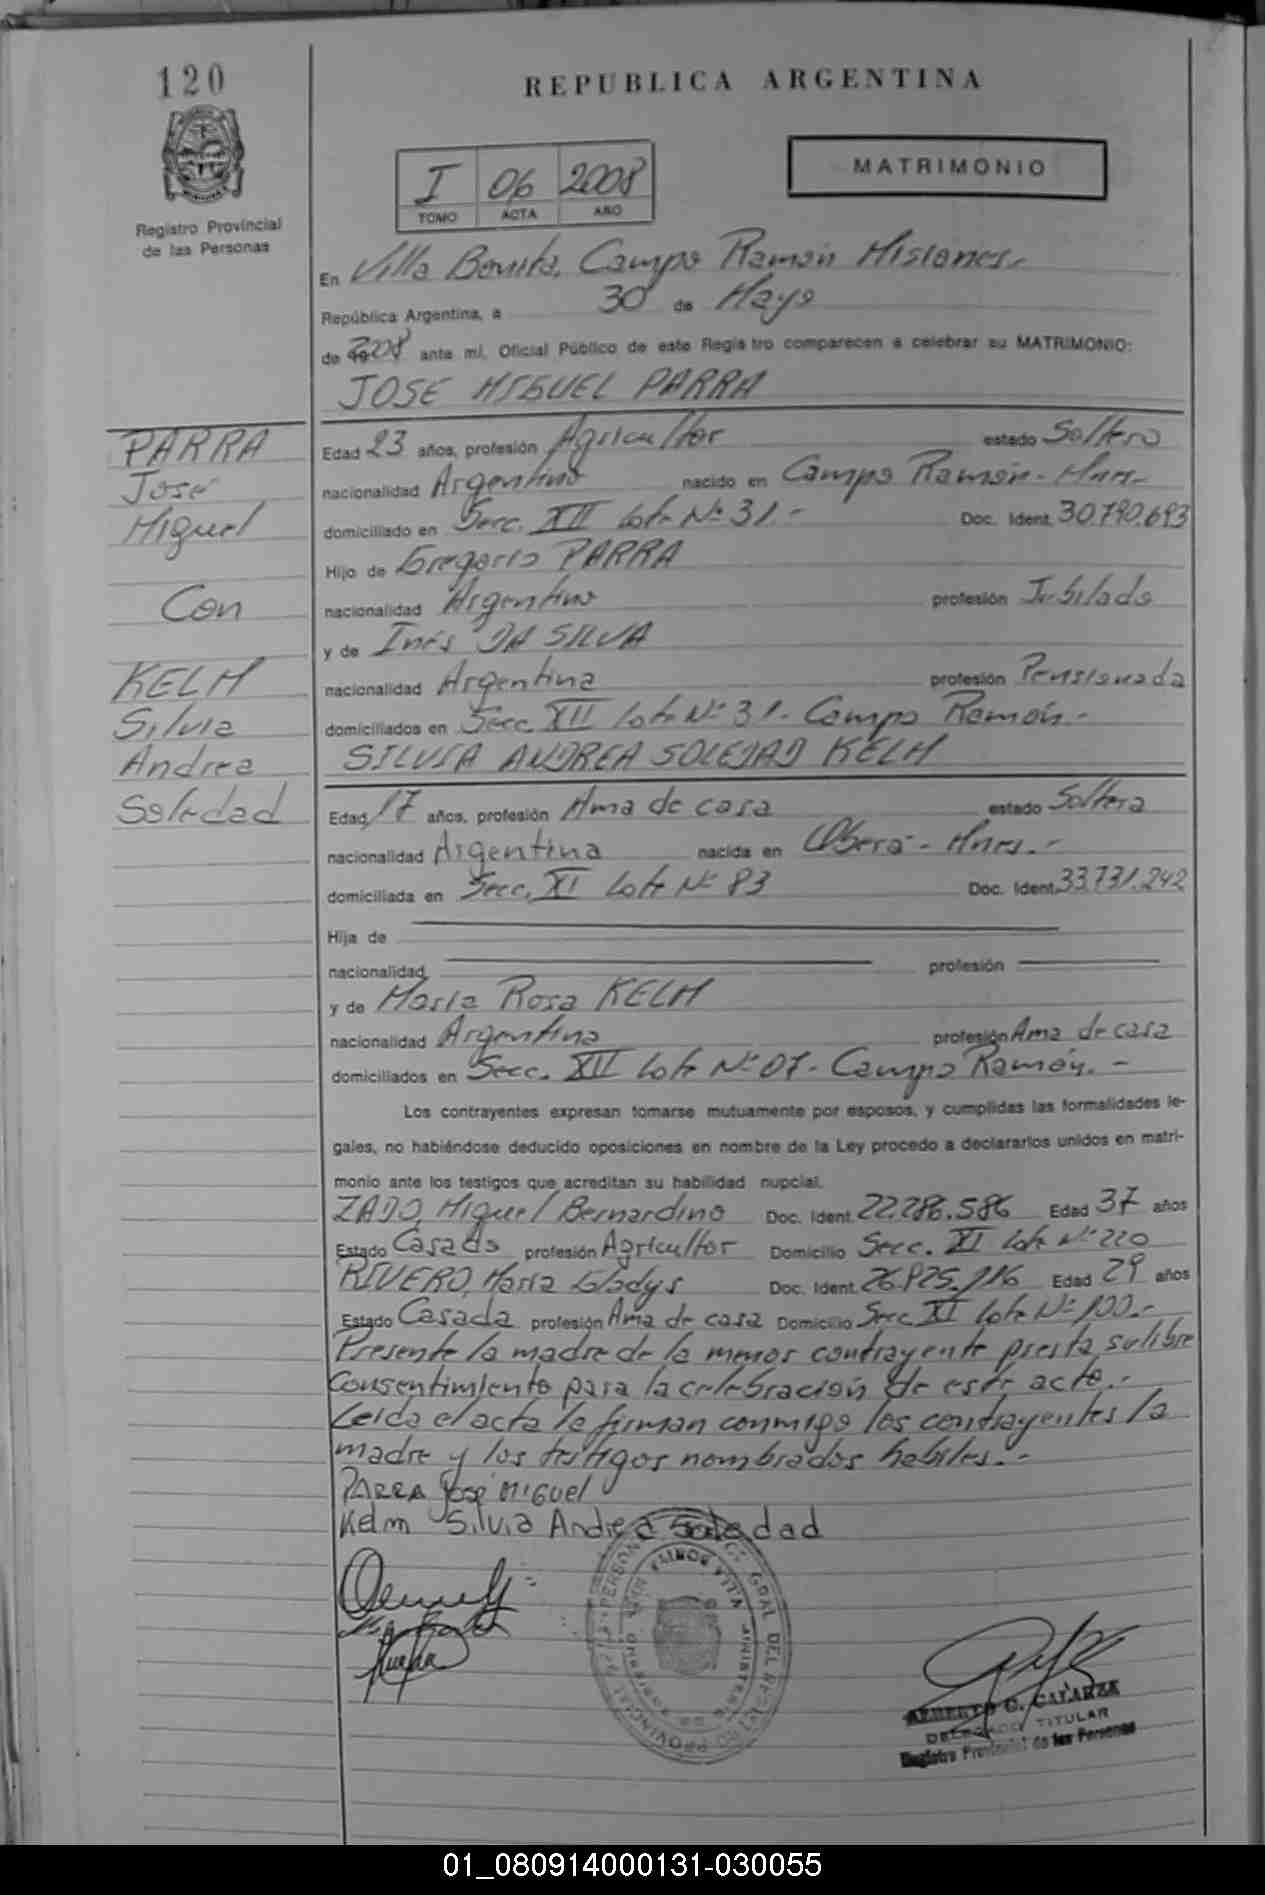 120
REPUBLICA ARGENTINA
Registro Provincial
de las Personas
I 06 2008
TOMO ACTA AÑO
MATRIMONIO
En Villa Bonita, Campo Ramón Misiones.-
República Argentina, a 30 de Mayo
de 2008 ante mi, Oficial Público de este Registro comparecen a celebrar su MATRIMONIO:
JOSE MIGUEL PARRA
PARRA
José
Miguel
Con
KELM
Silvia
Andrea
Soledad
Edad 23 años, profesión Agricultor estado Soltero
nacionalidad Argentino nacido en Campo Ramón - Mnes.-
domiciliado en Secc. XII Lote Nº 31.- Doc. Ident. 30.790.693
Hijo de Gregorio PARRA
nacionalidad Argentino profesión Jubilado
y de Inés DA SILVA
nacionalidad Argentina profesión Pensionada
domiciliados en Secc. XII Lote Nº 31- Campo Ramón.-
SILVIA ANDREA SOLEDAD KELM
Edad 17 años, profesión Ama de casa estado Soltera
nacionalidad Argentina nacida en Oberá - Mnes.-
domiciliada en Secc. XI Lote Nº 83 Doc. Ident. 33.731.242
Hija de
nacionalidad profesión
y de María Rosa KELM
nacionalidad Argentina profesión Ama de casa
domiciliados en Secc. XII Lote Nº 07- Campo Ramón.-
Los contrayentes expresan tomarse mutuamente por esposos, y cumplidas las formalidades le-
gales, no habiéndose deducido oposiciones en nombre de la Ley procedo a declararlos unidos en matri-
monio ante los testigos que acreditan su habilidad nupcial.
ZADO, Miguel Bernardino Doc. Ident. 22.286.586 Edad 37 años
Estado Casado profesión Agricultor Domicilio Secc. XI Lote Nº 220
RIVERO, María Gladys Doc. Ident. 26.825.216 Edad 29 años
Estado Casada profesión Ama de casa Domicilio Secc XI Lote Nº 100.-
Presente la madre de la menor contrayente presta su libre
consentimiento para la celebración de este acto.-
Leída el acta la firman conmigo los contrayentes la
madre y los testigos nombrados hábiles.-
PARRA José Miguel
Kelm Silvia Andrea Soledad
VILLA BONITA
ALBERTO G. GALARZA
DELEGADO TITULAR
Registro Provincial de las Personas
01_080914000131-030055